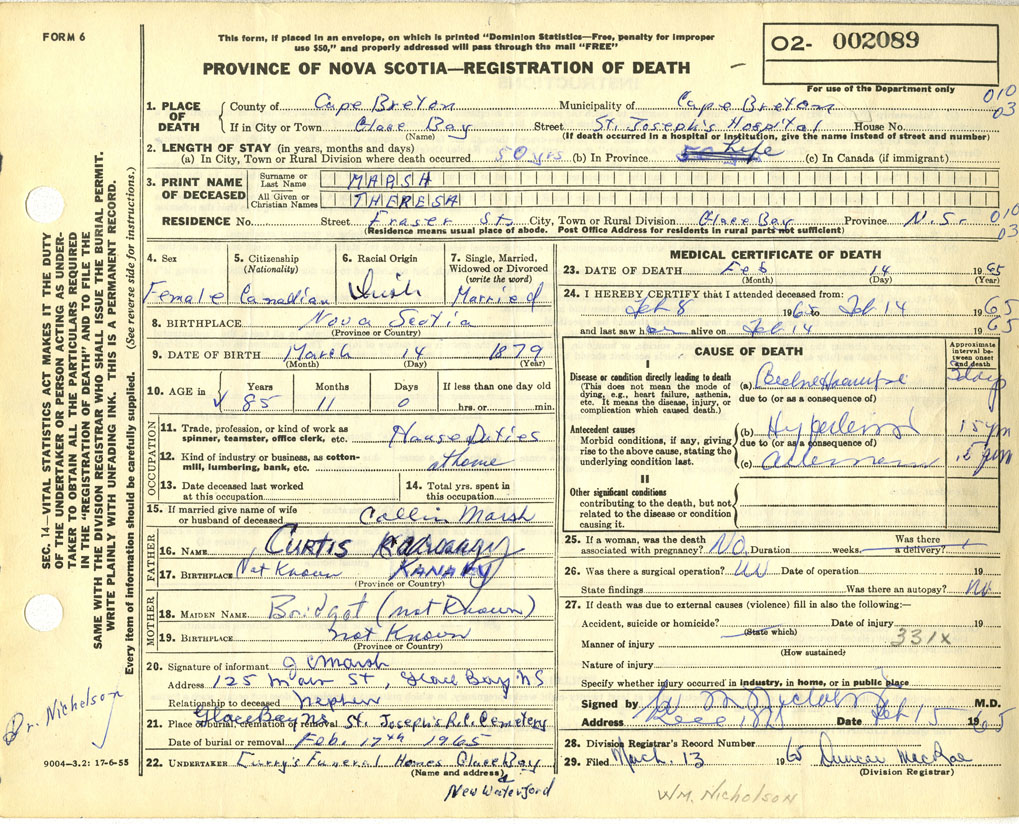 FORM 6
This form, if placed in an envelope, on which is printed "Dominion Statistics—Free, penalty for improper
use $50," and properly addressed will pass through the mail "FREE"
O2- 002089
PROVINCE OF NOVA SCOTIA—REGISTRATION OF DEATH
For use of the Department only
010
03
1. PLACE OF DEATH
County of Cape Breton Municipality of Cape Breton
If in City or Town Glace Bay Street St. Joseph's Hospital House No.
(Name) (If death occurred in a hospital or institution, give the name instead of street and number)
2. LENGTH OF STAY (in years, months and days)
(a) In City, Town or Rural Division where death occurred 50 yrs (b) In Province Life (c) In Canada (if immigrant)
3. PRINT NAME OF DECEASED
Surname or Last Name MARSH
All Given or Christian Names THERESA
RESIDENCE No. Street Fraser St. City, Town or Rural Division Glace Bay Province N.S.
010
03
(Residence means usual place of abode. Post Office Address for residents in rural parts not sufficient)
4. Sex
Female
5. Citizenship
(Nationality)
Canadian
6. Racial Origin
Irish
7. Single, Married,
Widowed or Divorced
(write the word)
Married
8. BIRTHPLACE Nova Scotia
(Province or Country)
9. DATE OF BIRTH March 14 1879
(Month) (Day) (Year)
10. AGE in
Years Months Days If less than one day old
85 11 0 hrs. or min.
OCCUPATION
11. Trade, profession, or kind of work as
spinner, teamster, office clerk, etc. House Duties
12. Kind of industry or business, as cotton-
mill, lumbering, bank, etc. at home
13. Date deceased last worked
at this occupation
14. Total yrs. spent in
this occupation
15. If married give name of wife
or husband of deceased Collin Marsh
FATHER
16. NAME CURTIS
17. BIRTHPLACE Not Known KANARY
(Province or Country)
MOTHER
18. MAIDEN NAME Bridget (not Known)
19. BIRTHPLACE not Known
(Province or Country)
20. Signature of informant J C Marsh
Address 125 Main St, Glace Bay NS
Relationship to deceased nephew
21. Place of burial, cremation or removal Glace Bay NS St. Joseph's R.C. Cemetery
Date of burial or removal Feb. 17th 1965
22. UNDERTAKER Curry's Funeral Homes Glace Bay
(Name and address) &
New Waterford
MEDICAL CERTIFICATE OF DEATH
23. DATE OF DEATH Feb 14 1965
(Month) (Day) (Year)
24. I HEREBY CERTIFY that I attended deceased from:
Feb 8 1965 to Feb 14 1965
and last saw her alive on Feb 14 1965
CAUSE OF DEATH
Approximate
interval be-
tween onset
and death
I
Disease or condition directly leading to death
(This does not mean the mode of
dying, e.g., heart failure, asthenia,
etc. It means the disease, injury, or
complication which caused death.)
(a)
due to (or as a consequence of)
Antecedent causes
Morbid conditions, if any, giving
rise to the above cause, stating the
underlying condition last.
(b)
due to (or as a consequence of)
(c)
II
Other significant conditions
contributing to the death, but not
related to the disease or condition
causing it.
25. If a woman, was the death
associated with pregnancy? No Duration weeks. Was there
a delivery?
26. Was there a surgical operation? Date of operation 19
State findings Was there an autopsy? No
27. If death was due to external causes (violence) fill in also the following:—
Accident, suicide or homicide? Date of injury 19
(State which)
Manner of injury 331X
(How sustained)
Nature of injury
Specify whether injury occurred in industry, in home, or in public place
Signed by M.D.
Address Date Feb 15 1965
28. Division Registrar's Record Number
29. Filed Mach. 13 1965 Duncan MacRae
(Division Registrar)
WM. NICHOLSON
SEC. 14—VITAL STATISTICS ACT MAKES IT THE DUTY
OF THE UNDERTAKER OR PERSON ACTING AS UNDER-
TAKER TO OBTAIN ALL THE PARTICULARS REQUIRED
IN THE "REGISTRATION OF DEATH" AND TO FILE THE
SAME WITH THE DIVISION REGISTRAR WHO SHALL ISSUE THE BURIAL PERMIT.
WRITE PLAINLY WITH UNFADING INK. THIS IS A PERMANENT RECORD.
Every item of information should be carefully supplied. (See reverse side for instructions.)
Dr. Nicholson
9004-3.2: 17-6-55